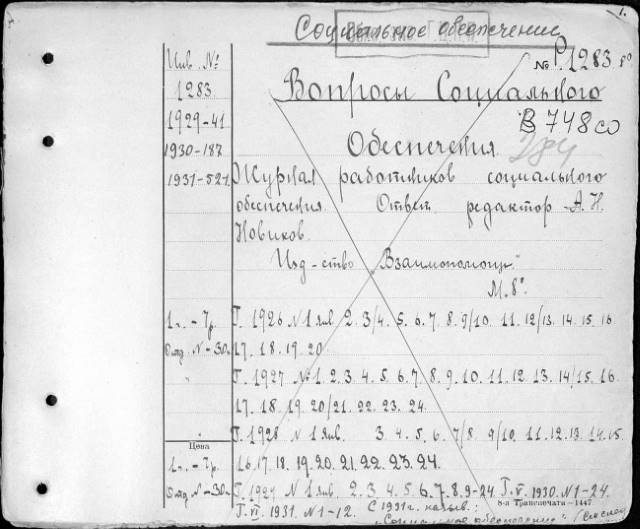 1.
Социальное обеспечение
№ Р1283 8°
Инв. №
1283
1929-41
1930-187
1931-521
Вопросы Социального
В 748 со
Обеспечения
284
Журнал работников социального
обеспечения. Ответ. редактор - А. Н.
Новиков.
Изд-ство "Взаимопомощь"
М. 8°.
1 г. - 7р. Г. 1926 № 1 янв. 2. 3/4. 5. 6. 7. 8. 9/10. 11. 12/13. 14. 15. 16
Отд. № - 30к. 17. 18. 19. 20
" Г. 1927 № 1. 2. 3. 4. 5. 6. 7. 8. 9. 10. 11. 12. 13. 14/15. 16
17. 18. 19. 20/21. 22. 23. 24
" Г. 1928 № 1 янв. 3. 4. 5. 6. 7/8. 9/10. 11. 12. 13. 14. 15
Цена
1 г. - 7р. 16. 17. 18. 19. 20. 21. 22. 23. 24.
Отд № - 30к Г. 1929 № 1 янв. 2. 3. 4. 5. 6. 7. 8. 9-24. Г. V. 1930. № 1-24.
8-я Транспечать -1447
Г. VI. 1931. № 1-12. С 1931 г. назыв:
"Социальное обеспечение"